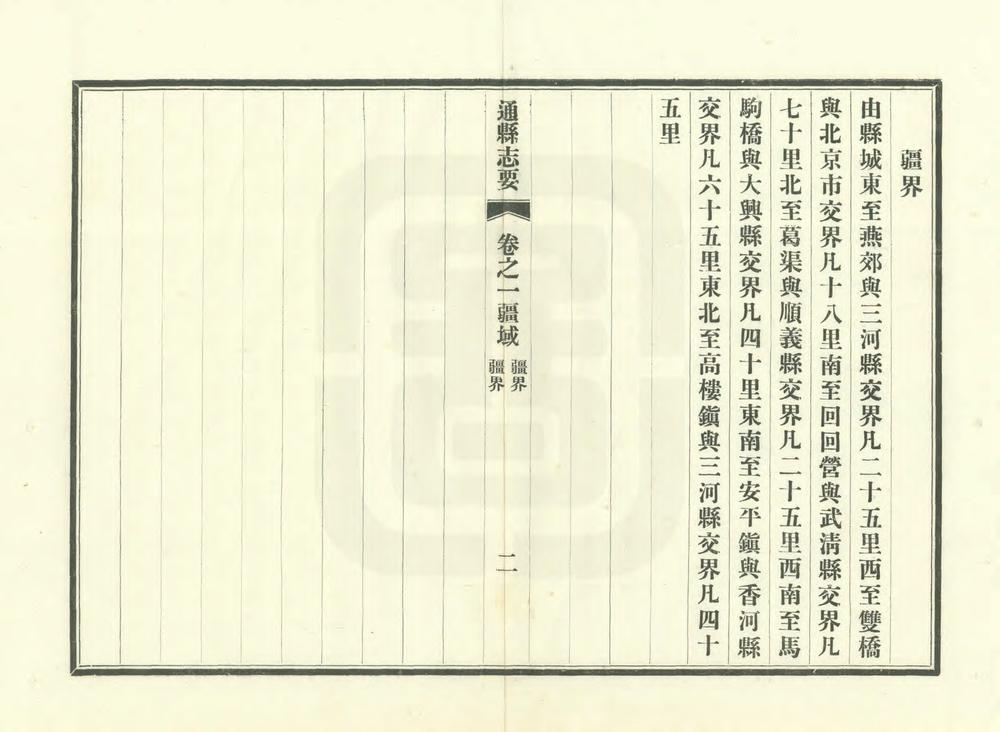 疆界
由縣城東至燕郊與三河縣交界凡二十五里西至雙橋
與北京市交界凡十八里南至回回營與武淸縣交界凡
七十里北至葛渠與順義縣交界凡二十五里西南至馬
駒橋與大興縣交界凡四十里東南至安平鎭與香河縣
交界凡六十五里東北至高樓鎭與三河縣交界凡四十
五里
通縣志要
卷之一疆域
疆界
疆界
二